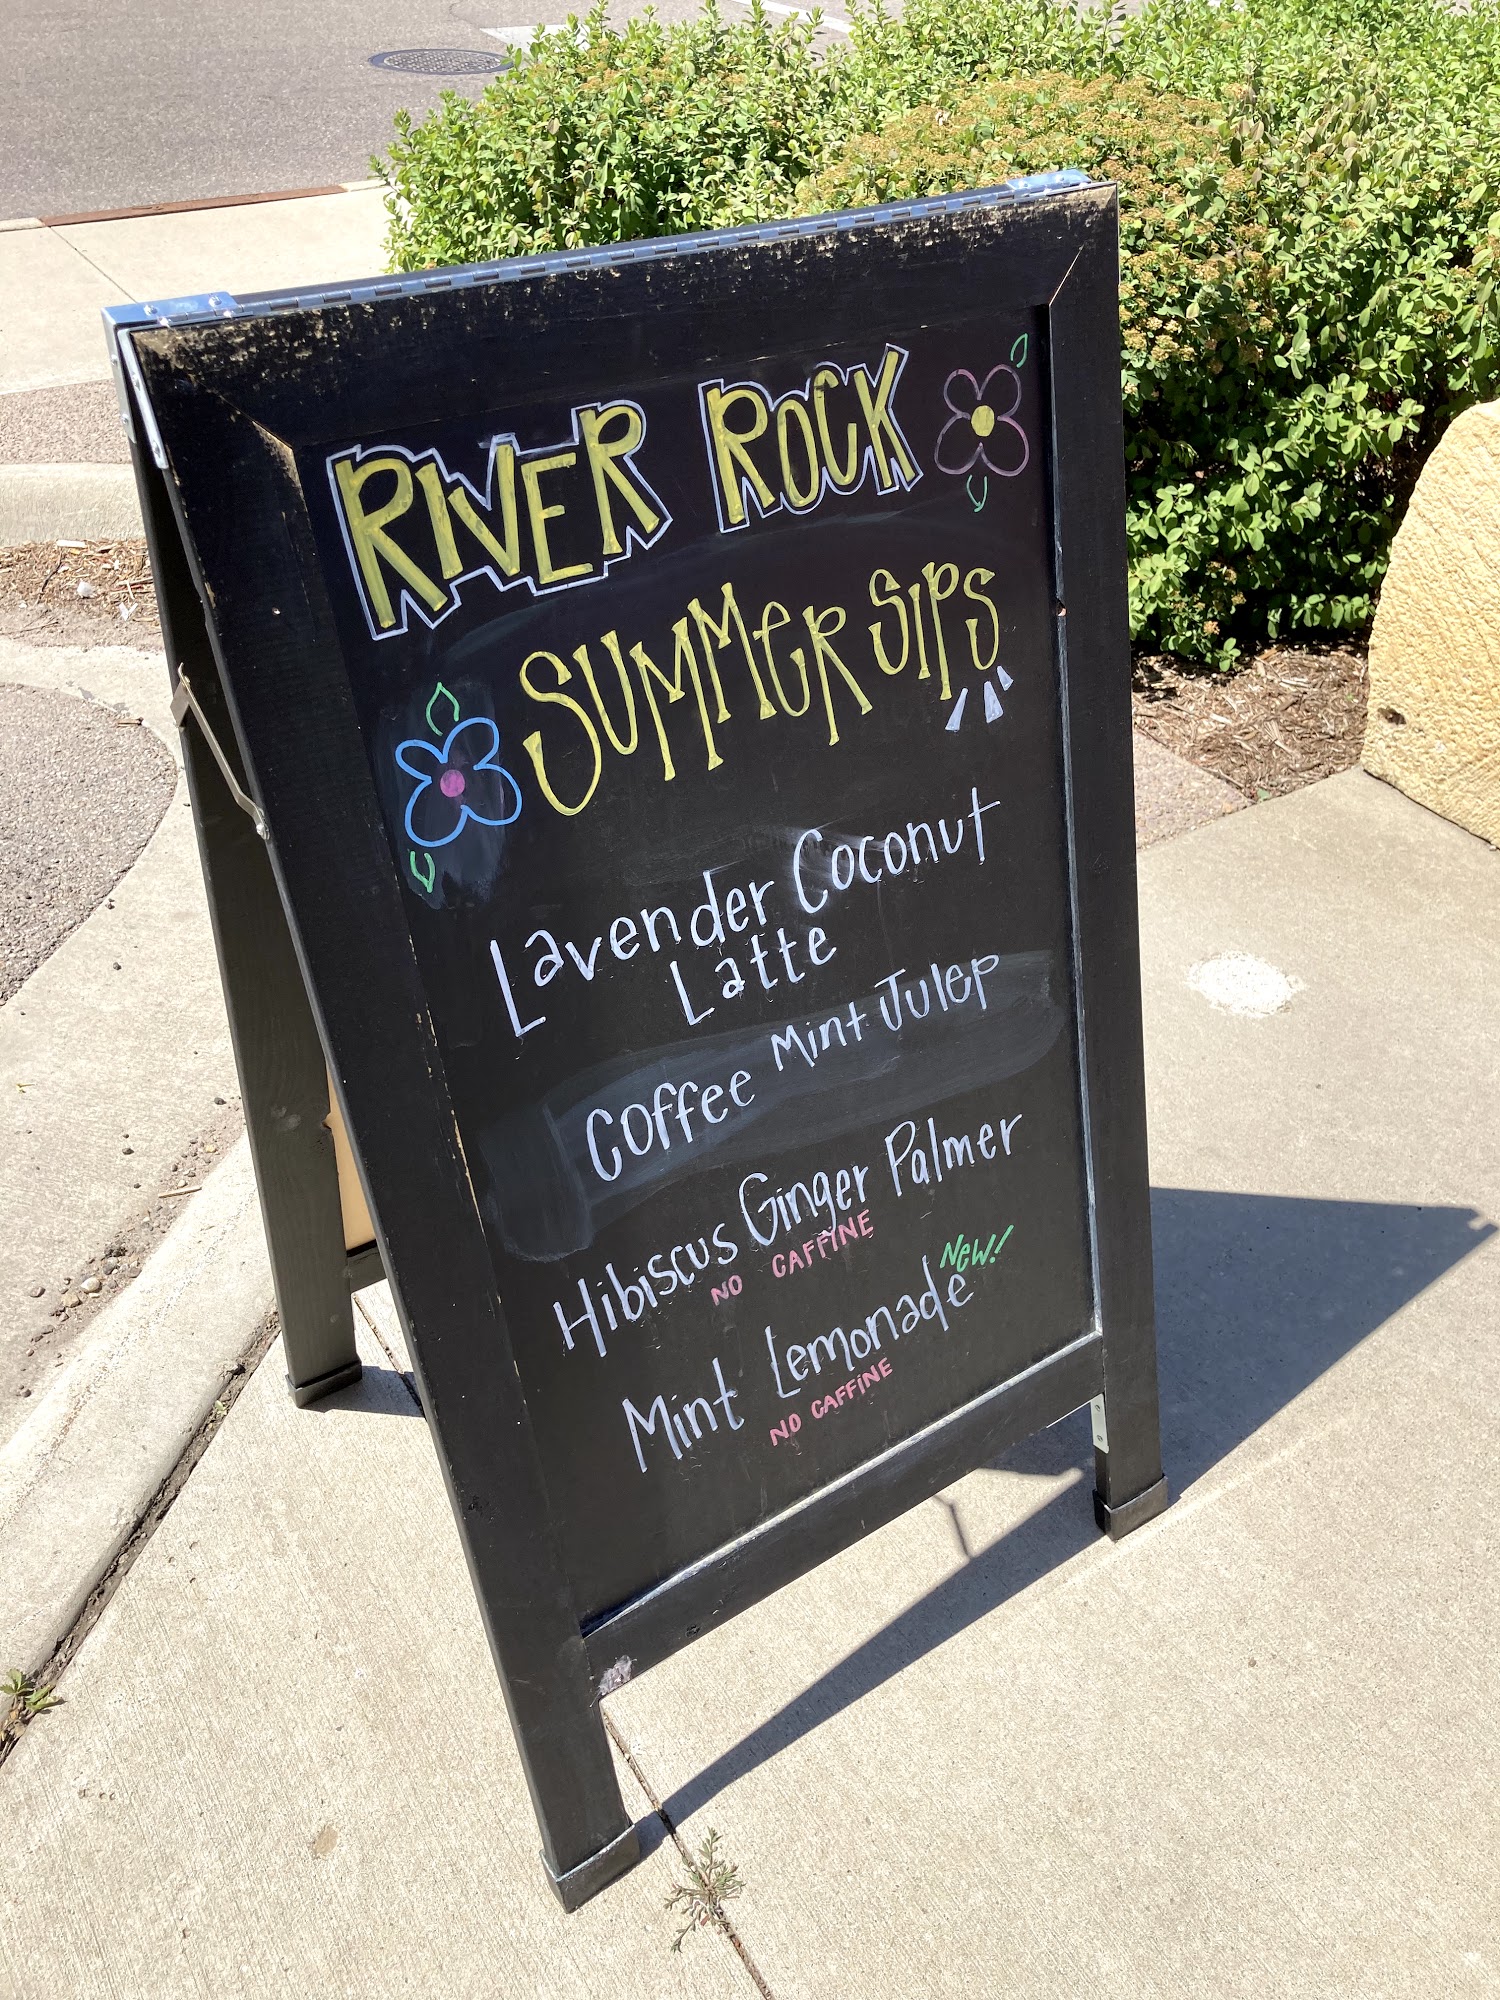 RIVER ROCK
SUMMER SIPS
Lavender Coconut
Latte
Coffee Mint Julep
Hibiscus Ginger Palmer
NO CAFFINE
New!
Mint Lemonade
NO CAFFINE